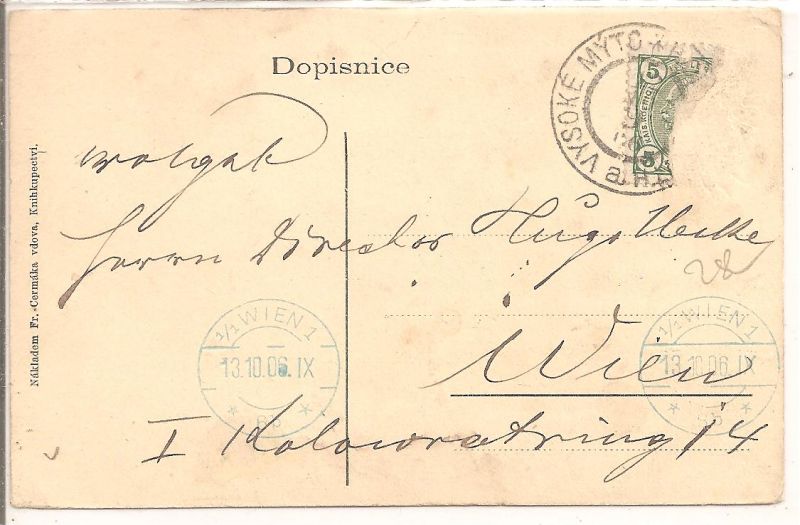 Dopisnice
VYSOKÉ MÝTO
5
5
Herrn Director Hugo
28
Wien
I Kolowratring 14
1/1 WIEN 1
13.10.06.IX
* 8b *
1/1 WIEN 1
13.10.06.IX
* 8b *
Nákladem Fr. Čermáka vdova, Knihkupectví.